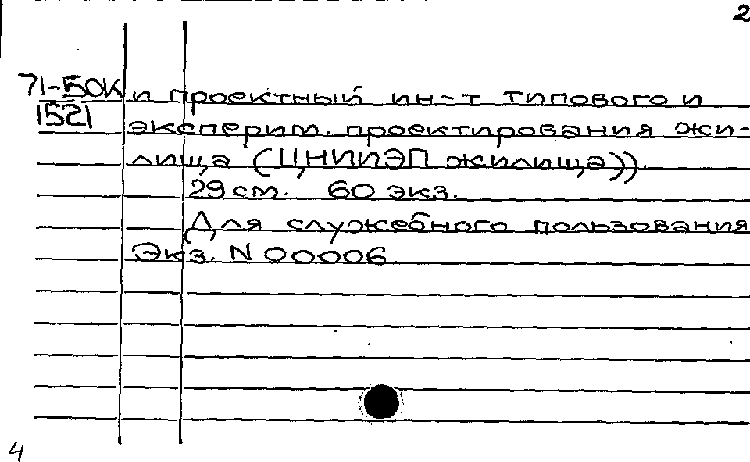 2
71-БОК и проектный ин-т типового и
1521 эксперим. проектирования жи-
лища (ЦНИИЭП жилища)).
29 см. 60 экз.
Для служебного пользования
Экз. N 00006
4